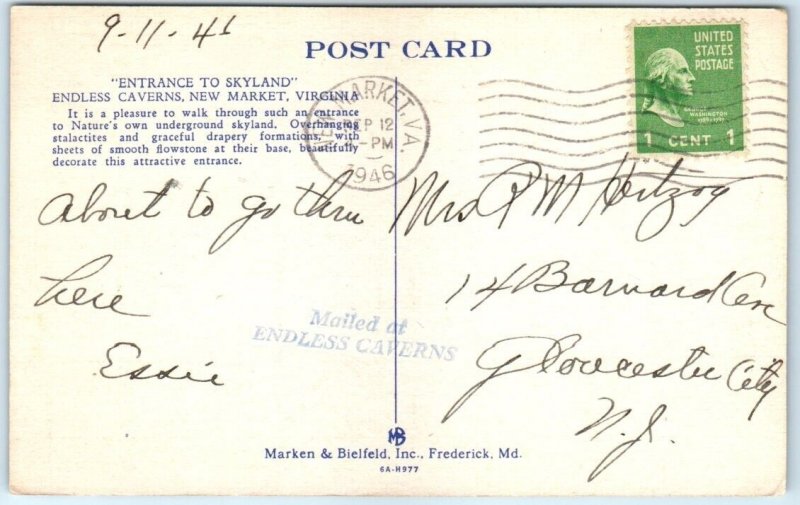 9-11-46
POST CARD
"ENTRANCE TO SKYLAND"
ENDLESS CAVERNS, NEW MARKET, VIRGINIA
It is a pleasure to walk through such an entrance
to Nature's own underground skyland. Overhanging
stalactites and graceful drapery formations, with
sheets of smooth flowstone at their base, beautifully
decorate this attractive entrance.
NEW MARKET, VA.
SEP 12
PM
1946
UNITED
STATES
POSTAGE
GEORGE
WASHINGTON
1789-1797
1 CENT 1
About to go thru
here
Essie
Mrs R M Hertzog
14 Barnard Ave
Gloucester City
N.J.
Mailed at
ENDLESS CAVERNS
MB
Marken & Bielfeld, Inc., Frederick, Md.
6A-H977